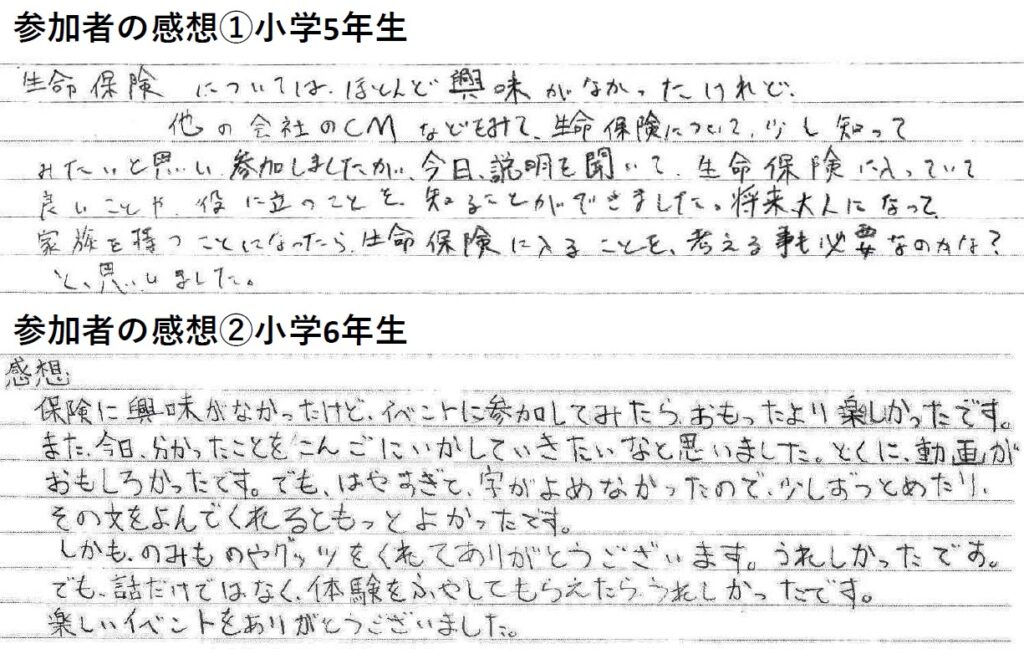 参加者の感想①小学5年生
生命保険 については、ほとんど興味がなかったけれど、
他の会社のCMなどをみて、生命保険について、少し知って
みたいと思い参加しましたが、今日、説明を聞いて、生命保険に入っていて
良いことや、役に立つことを、知ることができました。将来大人になって、
家族を持つことになったら、生命保険に入ることを、考える事も必要なのかな?
と、思いました。
参加者の感想②小学6年生
感想
保険に興味がなかったけど、イベントに参加してみたら、おもったより楽しかったです。
また、今日、分かったことをこんごにいかしていきたいなと思いました。とくに、動画が
おもしろかったです。でも、はやすぎて、字がよめなかったので、少しずつとめたり、
その文をよんでくれるともっとよかったです。
しかも、のみものやグッツをくれてありがとうございます。うれしかったです。
でも、話だけではなく、体験をふやしてもらえたらうれしかったです。
楽しいイベントをありがとうございました。